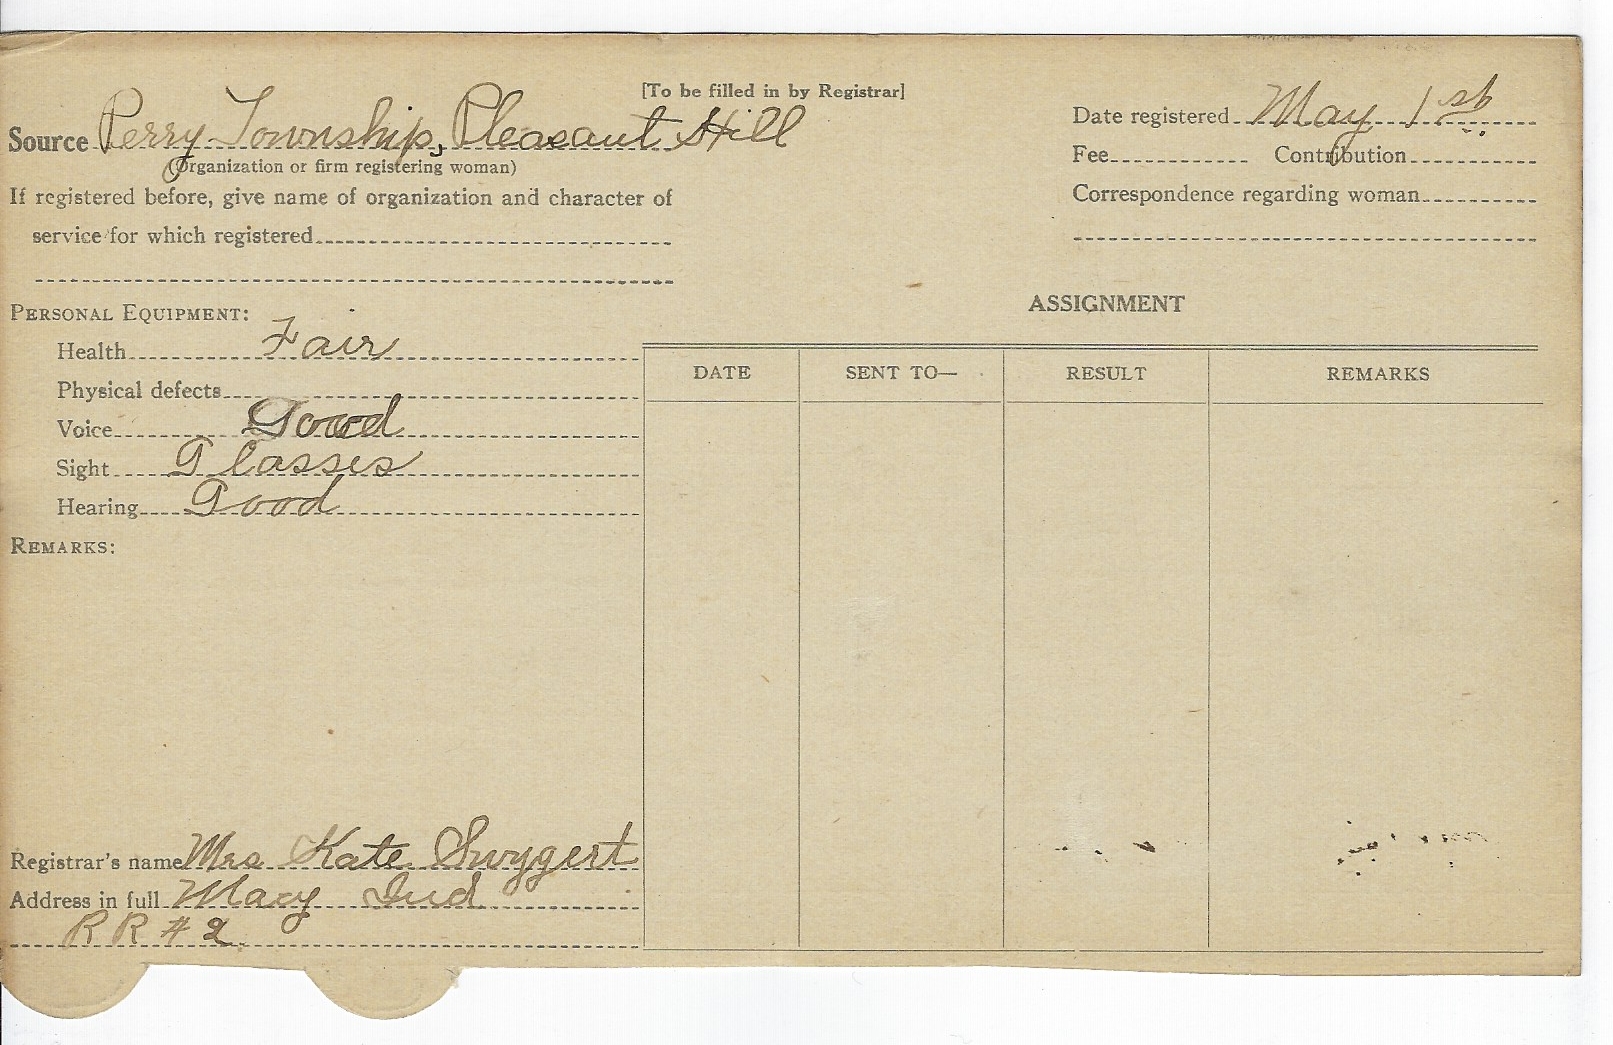 [To be filled in by Registrar]
Source Perry Township, Pleasant Hill
(Organization or firm registering woman)
If registered before, give name of organization and character of
service for which registered
Date registered May 1st
Fee Contribution
Correspondence regarding woman
PERSONAL EQUIPMENT:
Health Fair
Physical defects
Voice Good
Sight Glasses
Hearing Good
REMARKS:
Registrar's name Mrs Kate Swygert
Address in full Macy Ind
RR # 2
ASSIGNMENT
DATE SENT TO— RESULT REMARKS